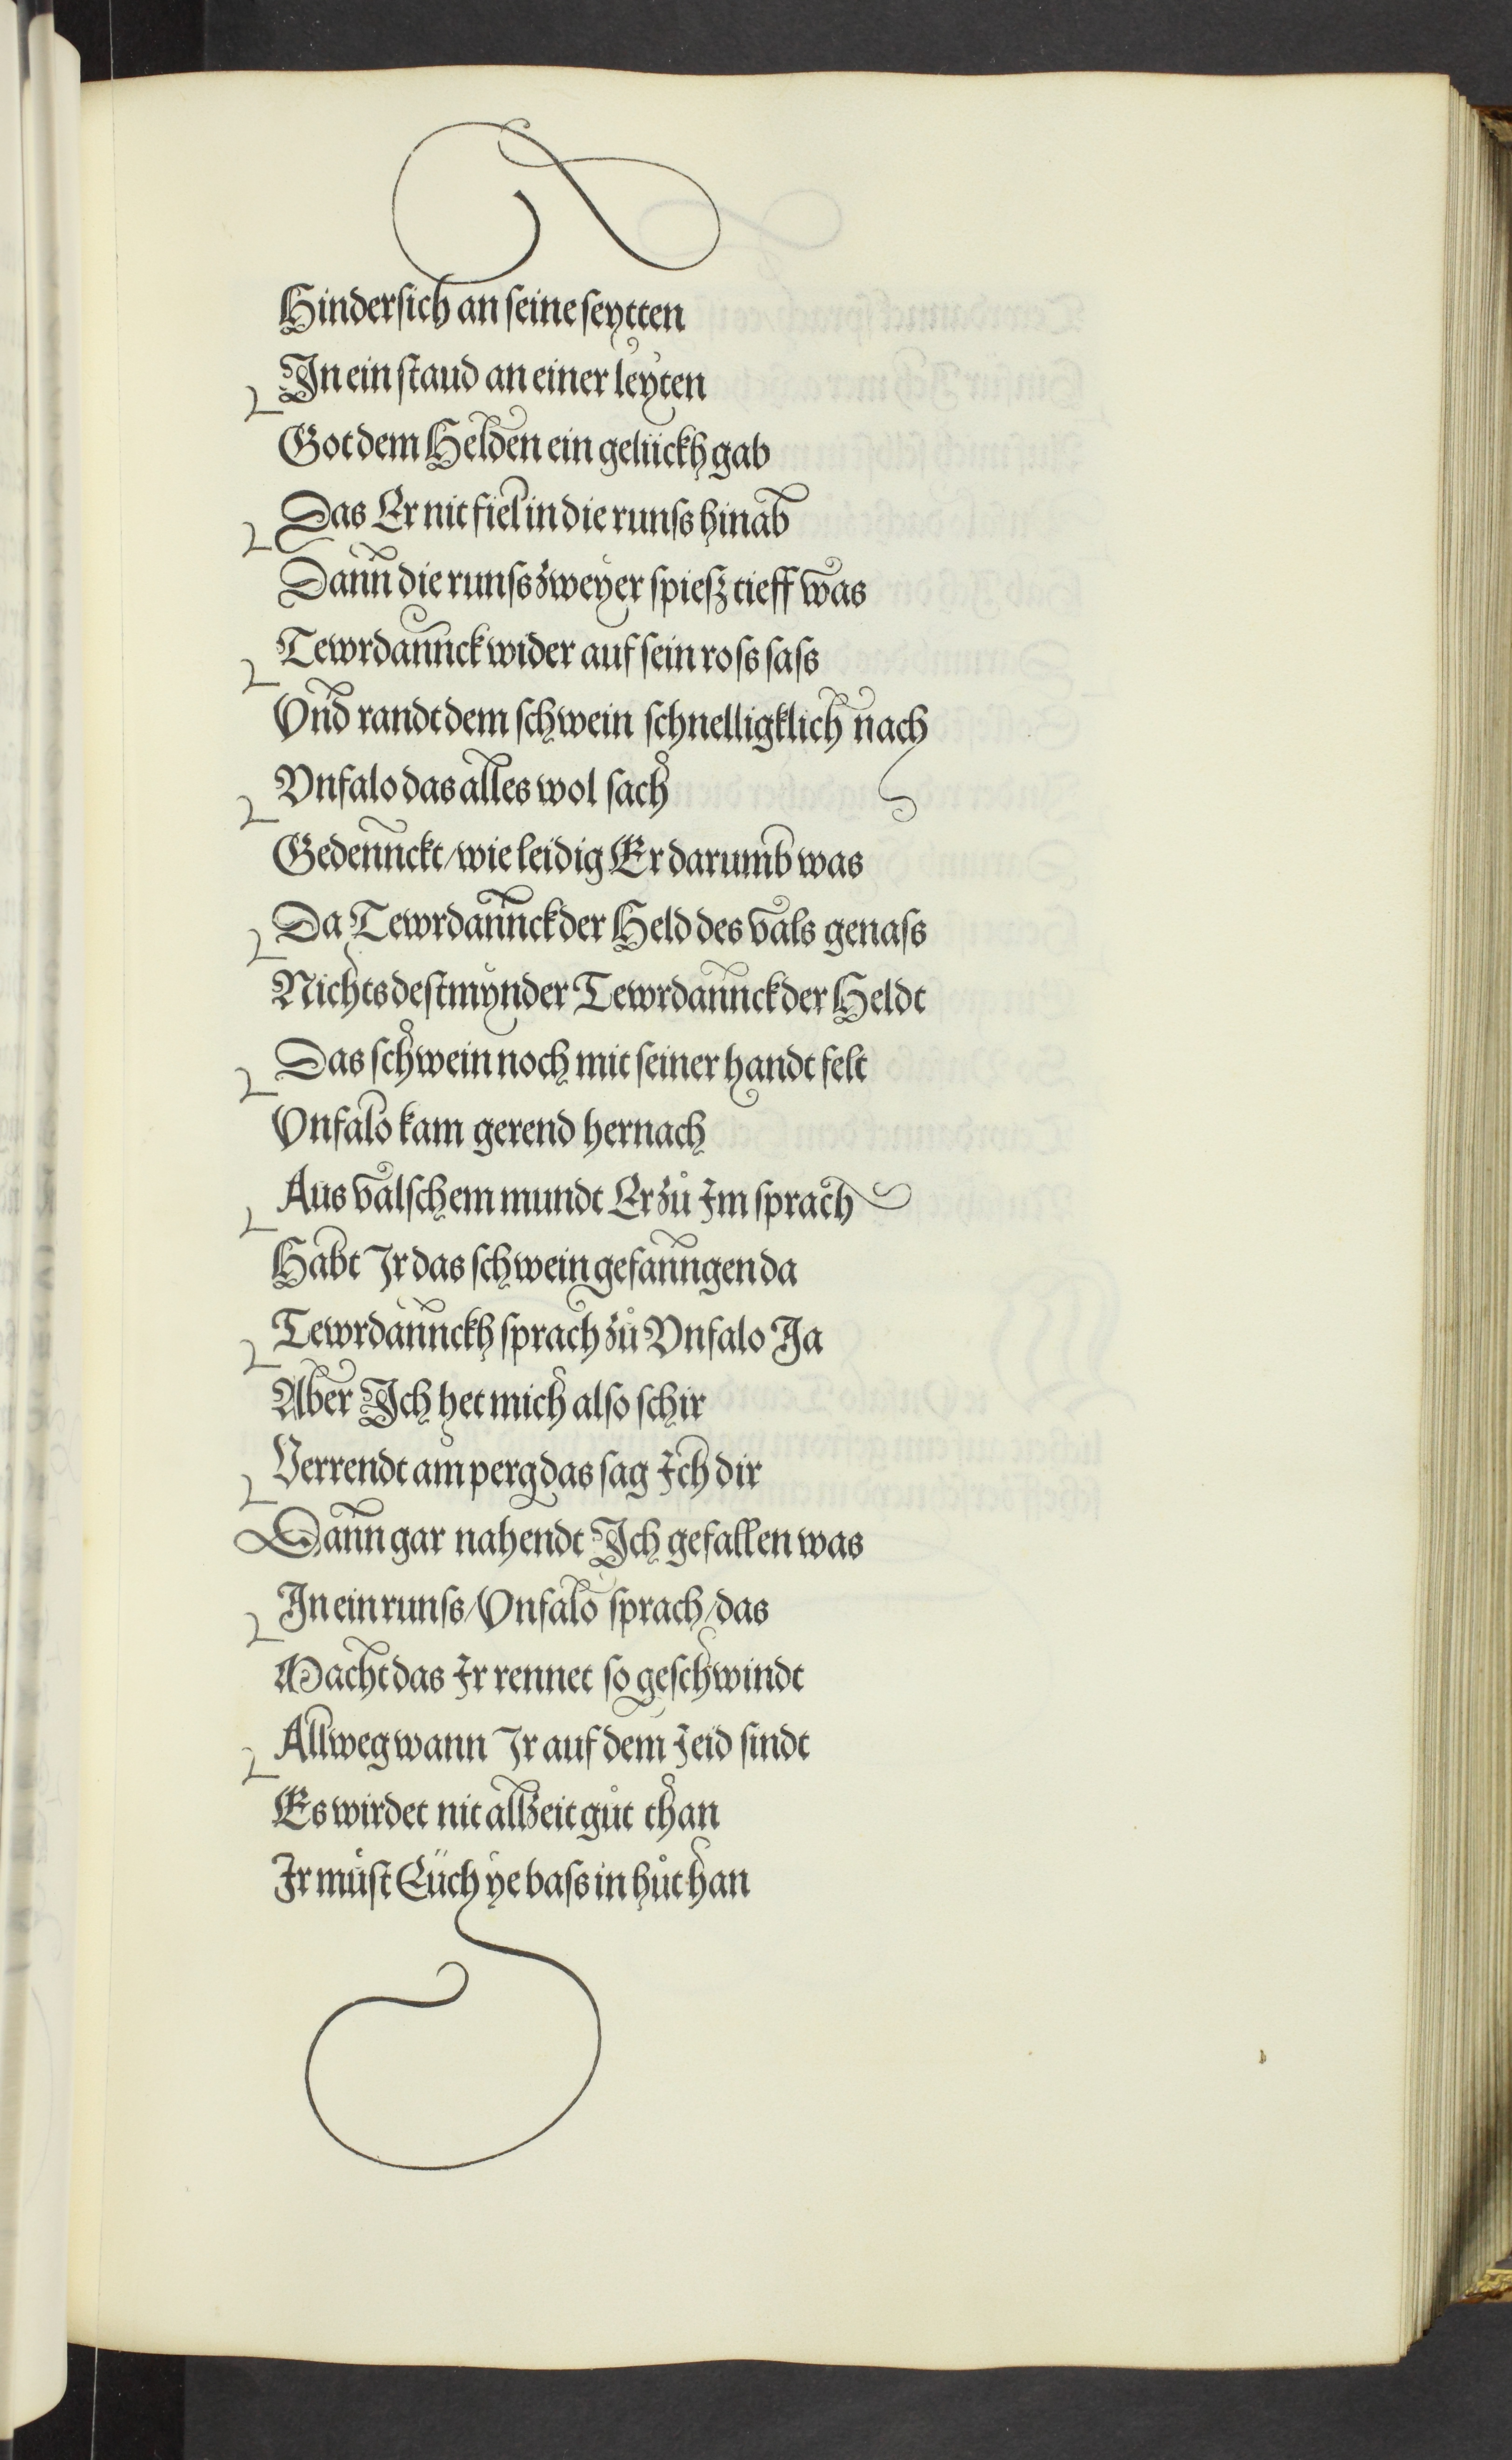 Hinder sich an seine seytten
In ein staud an einer leyten
Got dem Helden ein gelückh gab
Das Er nit fiel in die runss hinab
Dann die runss zweyer spiesz tieff was
Tewrdannck wider auf sein ross sass
Vnd randt dem schwein schnelligklich nach
Vnfalo das alles wol sach
Gedennckt/wie leidig Er darumb was
Da Tewrdannck der Held des vals genass
Nichts destmynder Tewrdannck der Heldt
Das schwein noch mit seiner handt felt
Vnfalo kam gerend hernach
Aus valschem mundt Er zů Im sprach
Habt Ir das schwein gefanngen da
Tewrdannckh sprach zů Vnfalo Ja
Aber Ich het mich also schir
Verrendt am perg das sag Ich dir
Dann gar nahendt Ich gefallen was
In ein runss/Vnfalo sprach/das
Macht das Ir rennet so geschwindt
Allweg wann Ir auf dem Jeid sindt
Es wirdet nit allzeit gůt than
Ir můst Eüch ye bass in hůt han